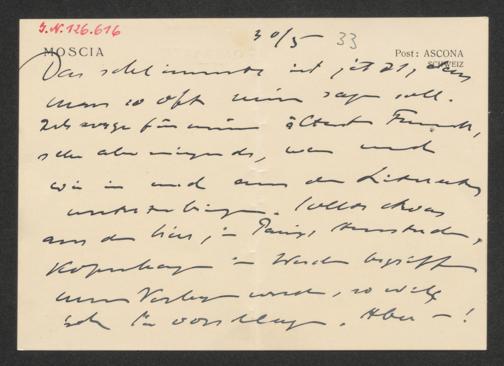 J.N. 126.616
30/5 33
MOSCIA
Post: ASCONA
SCHWEIZ
Das schlimmste ist jetzt, dass
man so oft nein sagen soll.
Ich sorge für meine ältesten Freunde,
sehe aber nirgends, wo und
wie in und aus der Literatur
unterzubringen. Sollte etwas
aus den hier, in Paris, Amsterdam,
Kopenhagen im Werden begriffenen
neuen Verlagen werden, so will
ich Sie vorschlagen. Aber – !